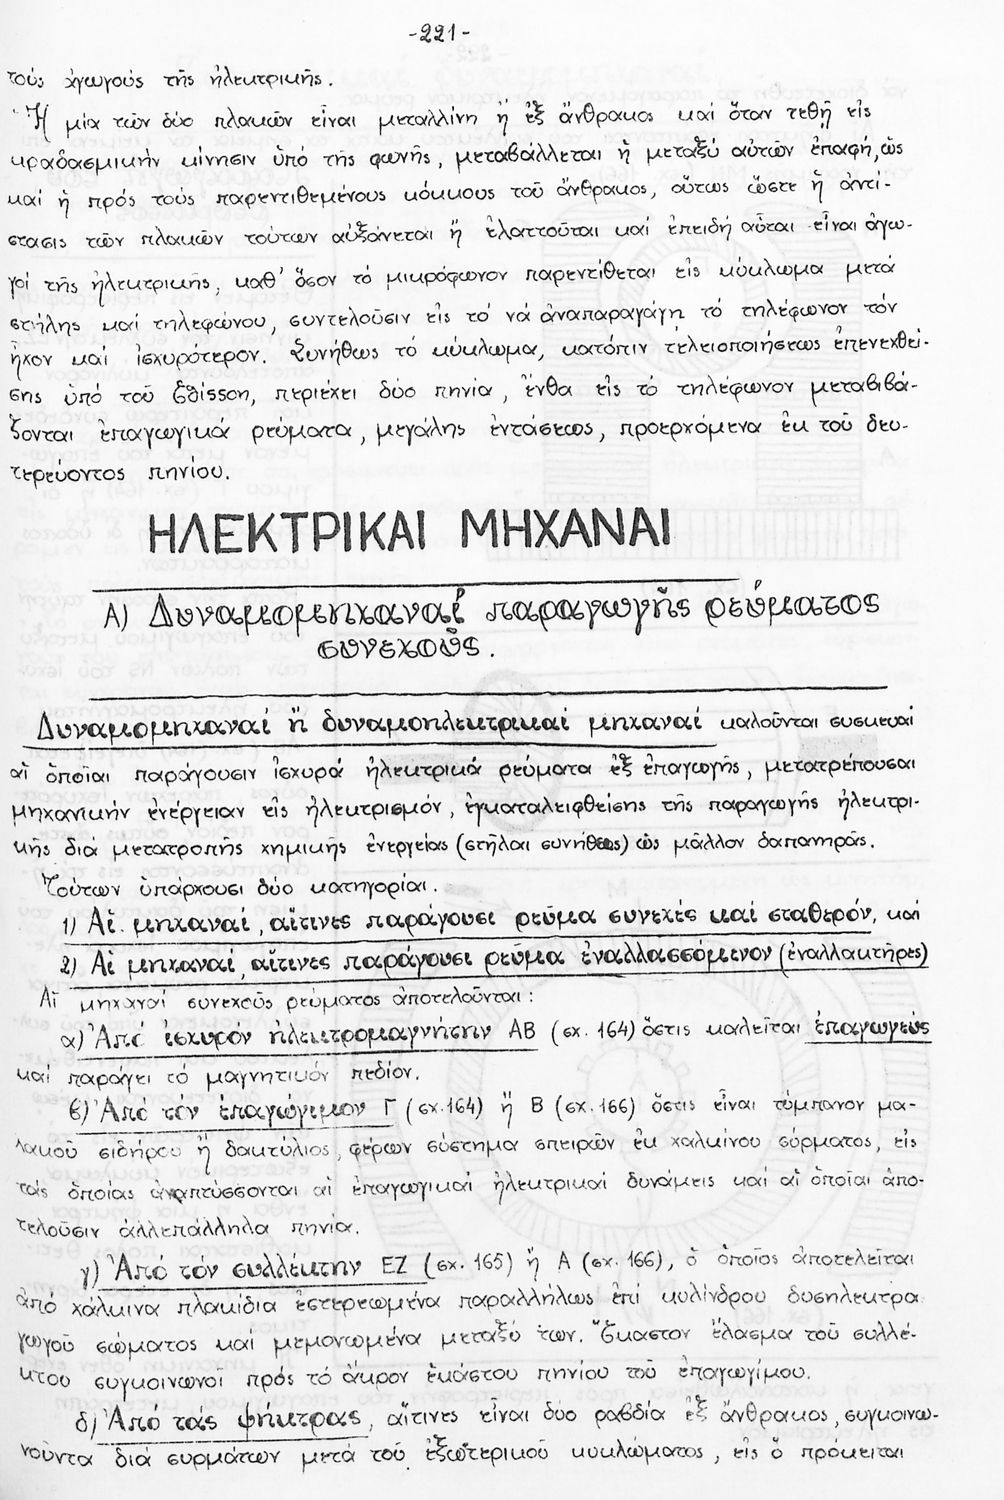 -221-
τούς ἀγωγούς τῆς ἠλεκτρικῆς.
Ἡ μία τῶν δύο πλακῶν εἶναι μεταλλίνη ἤ ἐξ ἄνθρακος καί ὅταν τεθῇ εἰς
κραδασμικήν κίνησιν ὑπό τῆς φωνῆς, μεταβάλλεται ἡ μεταξύ αὐτῶν ἐπαφή, ὡς
καί ἡ πρός τούς παρεντιθεμένους κόκκους τοῦ ἄνθρακος, οὕτως ὥστε ἡ ἀντί-
στασις τῶν πλακῶν τούτων αὐξάνεται ἤ ἐλαττοῦται καί ἐπειδή αὗται εἶναι ἀγω-
γοί τῆς ἠλεκτρικῆς, καθ' ὅσον τό μικρόφωνον παρεντίθεται εἰς κύκλωμα μετά
στήλης καί τηλεφώνου, συντελοῦσιν εἰς τό νά ἀναπαραγάγῃ τό τηλέφωνον τόν
ἦχον καί ἰσχυρότερον. Συνήθως τό κύκλωμα, κατόπιν τελειοποιήσεως ἐπενεχθεί-
σης ὑπό τοῦ Ἔδισσον, περιέχει δύο πηνία, ἔνθα εἰς τό τηλέφωνον μεταβιβά-
ζονται ἐπαγωγικά ρεύματα, μεγάλης ἐντάσεως, προερχόμενα ἐκ τοῦ δευ-
τερεύοντος πηνίου.
ΗΛΕΚΤΡΙΚΑΙ ΜΗΧΑΝΑΙ
Α) Δυναμομηχαναί παραγωγῆς ρεύματος
συνεχοῦς.
Δυναμομηχαναί ἤ δυναμοηλεκτρικαί μηχαναί καλοῦνται συσκευαί
αἱ ὁποῖαι παράγουσιν ἰσχυρά ἠλεκτρικά ρεύματα ἐξ ἐπαγωγῆς, μετατρέπουσαι
μηχανικήν ἐνέργειαν εἰς ἠλεκτρισμόν, ἐγκαταλειφθείσης τῆς παραγωγῆς ἠλεκτρι-
κῆς διά μετατροπῆς χημικῆς ἐνεργείας (στῆλαι συνήθεις) ὡς μᾶλλον δαπανηρᾶς.
Τούτων ὑπάρχουσι δύο κατηγορίαι.
1) Αἱ μηχαναί, αἵτινες παράγουσι ρεῦμα συνεχές καί σταθερόν, καί
2) Αἱ μηχαναί, αἵτινες παράγουσι ρεῦμα ἐναλλασσόμενον (ἐναλλακτῆρες)
Αἱ μηχαναί συνεχοῦς ρεύματος ἀποτελοῦνται:
α) Ἀπό ἰσχυρόν ἠλεκτρομαγνήτην ΑΒ (σχ. 164) ὅστις καλεῖται ἐπαγωγεύς
καί παράγει τό μαγνητικόν πεδίον.
β) Ἀπό τόν ἐπαγώγιμον Γ (σχ. 164) ἤ Β (σχ. 166) ὅστις εἶναι τύμπανον μα-
λακοῦ σιδήρου ἤ δακτύλιος, φέρων σύστημα σπειρῶν ἐκ χαλκίνου σύρματος, εἰς
τάς ὁποίας ἀναπτύσσονται αἱ ἐπαγωγικαί ἠλεκτρικαί δυνάμεις καί αἱ ὁποῖαι ἀπο-
τελοῦσιν ἀλλεπάλληλα πηνία.
γ) Ἀπό τόν συλλέκτην ΕΖ (σχ. 165) ἤ Α (σχ. 166), ὁ ὁποῖος ἀποτελεῖται
ἀπό χάλκινα πλακίδια ἐστερεωμένα παραλλήλως ἐπί κυλίνδρου δυσηλεκτρα
γωγοῦ σώματος καί μεμονωμένα μεταξύ των. Ἕκαστον ἔλασμα τοῦ συλλέ-
κτου συγκοινωνοῖ πρός τό ἄκρον ἑκάστου πηνίου τοῦ ἐπαγωγίμου.
δ) Ἀπό τάς ψήκτρας, αἵτινες εἶναι δύο ραβδία ἐξ ἄνθρακος, συγκοινω-
νοῦντα διά συρμάτων μετά τοῦ ἐξωτερικοῦ κυκλώματος, εἰς ὅ πρόκειται